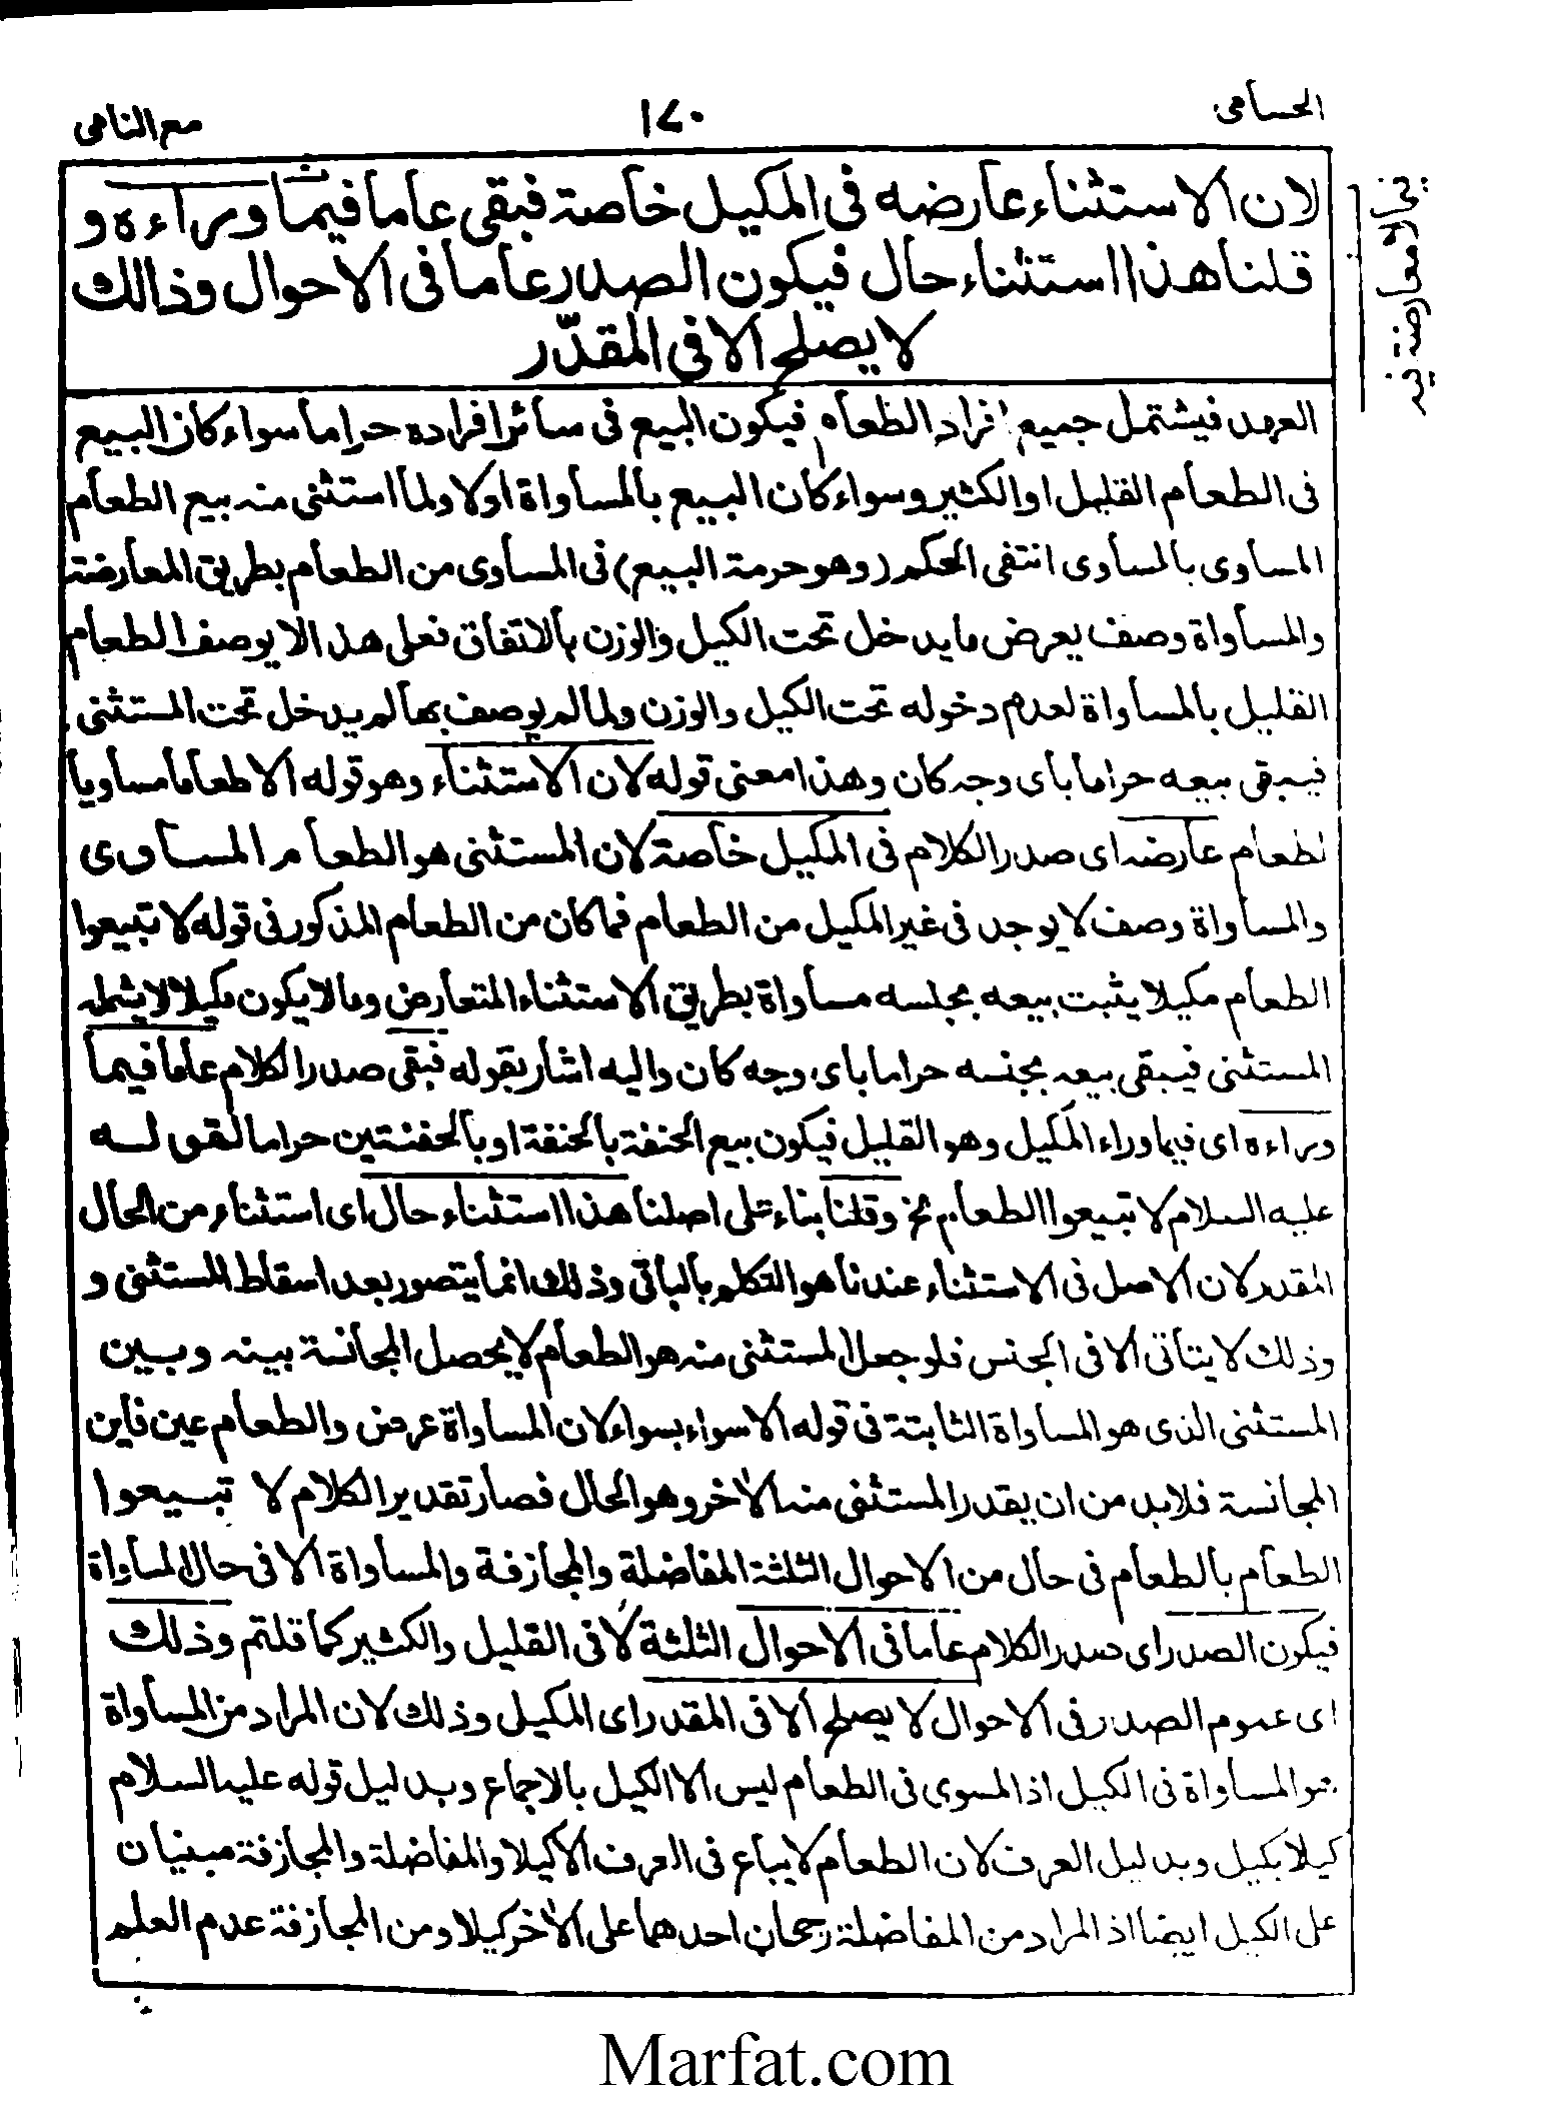 الحسامى
١٧٠
مع النامى
لان الاستثناء عارضه فى المكيل خاصة فبقى عاما فيما وراءه و
قلنا هذا استثناء حال فيكون الصدر عاما فى الاحوال وذالك
لا يصلح الا فى المقدّر
العهد فيشتمل جميع افراد الطعام فيكون البيع فى سائر افراده حراما سواء كان البيع
فى الطعام القليل او الكثير وسواء كان البيع بالمساواة اولا ولما استثنى منه بيع الطعام
المساوى بالمساوى انتفى الحكم (وهو حرمة البيع) فى المساوى من الطعام بطريق المعارضة
والمساواة وصف يعرض ما يدخل تحت الكيل والوزن بالاتفاق فعلى هذا لا يوصف الطعام
القليل بالمساواة لعدم دخوله تحت الكيل والوزن ولما لم يوصف بها لم يدخل تحت المستثنى
فيبقى بيعه حراما باى وجه كان وهذا معنى قوله لان الاستثناء وهو قوله الا طعاما مساويا
لطعام عارضه اى صدر الكلام فى المكيل خاصة لان المستثنى هو الطعام المساوى
والمساواة وصف لا يوجد فى غير المكيل من الطعام فما كان من الطعام المذكور فى قوله لا تبيعوا
الطعام مكيلا يثبت بيعه بجلسه مساواة بطريق الاستثناء المتعارض وما لا يكون مكيلا لا يشمله
المستثنى فيبقى بيعه بجنسه حراما باى وجه كان واليه اشار بقوله فبقى صدر الكلام عاما فيما
وراءه اى فيما وراء المكيل وهو القليل فيكون بيع الحنفة بالحنفة او بالحفنتين حراما لقوله
عليه السلام لا تبيعوا الطعام الخ وقلنا بناء على اصلنا هذا استثناء حال اى استثناء من الحال
المقدر لان الاصل فى الاستثناء عندنا هو التكلم بالباقى وذلك انما يتصور بعد اسقاط المستثنى و
وذلك لا يتأتى الا فى الجنس فلو جعل المستثنى منه هو الطعام لا يحصل المجانسة بينه وبين
المستثنى الذى هو المساواة الثابتة فى قوله الا سواء بسواء لان المساواة عرض والطعام عين فاين
المجانسة فلابد من ان يقدر المستثنى منه الاخر وهو الحال فصار تقدير الكلام لا تبيعوا
الطعام بالطعام فى حال من الاحوال الثلثة المفاضلة والمجازفة والمساواة الا فى حال المساواة
فيكون الصدر اى صدر الكلام عاما فى الاحوال الثلثة لا فى القليل والكثير كما قلتم وذلك
اى عموم الصدر فى الاحوال لا يصلح الا فى المقدر اى المكيل وذلك لان المراد من المساواة
هو المساواة فى الكيل اذ المسوى فى الطعام ليس الا الكيل بالاجماع وبدليل قوله عليه السلام
كيلا بكيل وبدليل العرف لان الطعام لا يباع فى العرف الا كيلا والمفاضلة والمجازفة مبنيان
على الكيل ايضا اذ المراد من المفاضلة رجحان احدهما على الاخر كيلا ومن المجازفة عدم العلم
Marfat.com